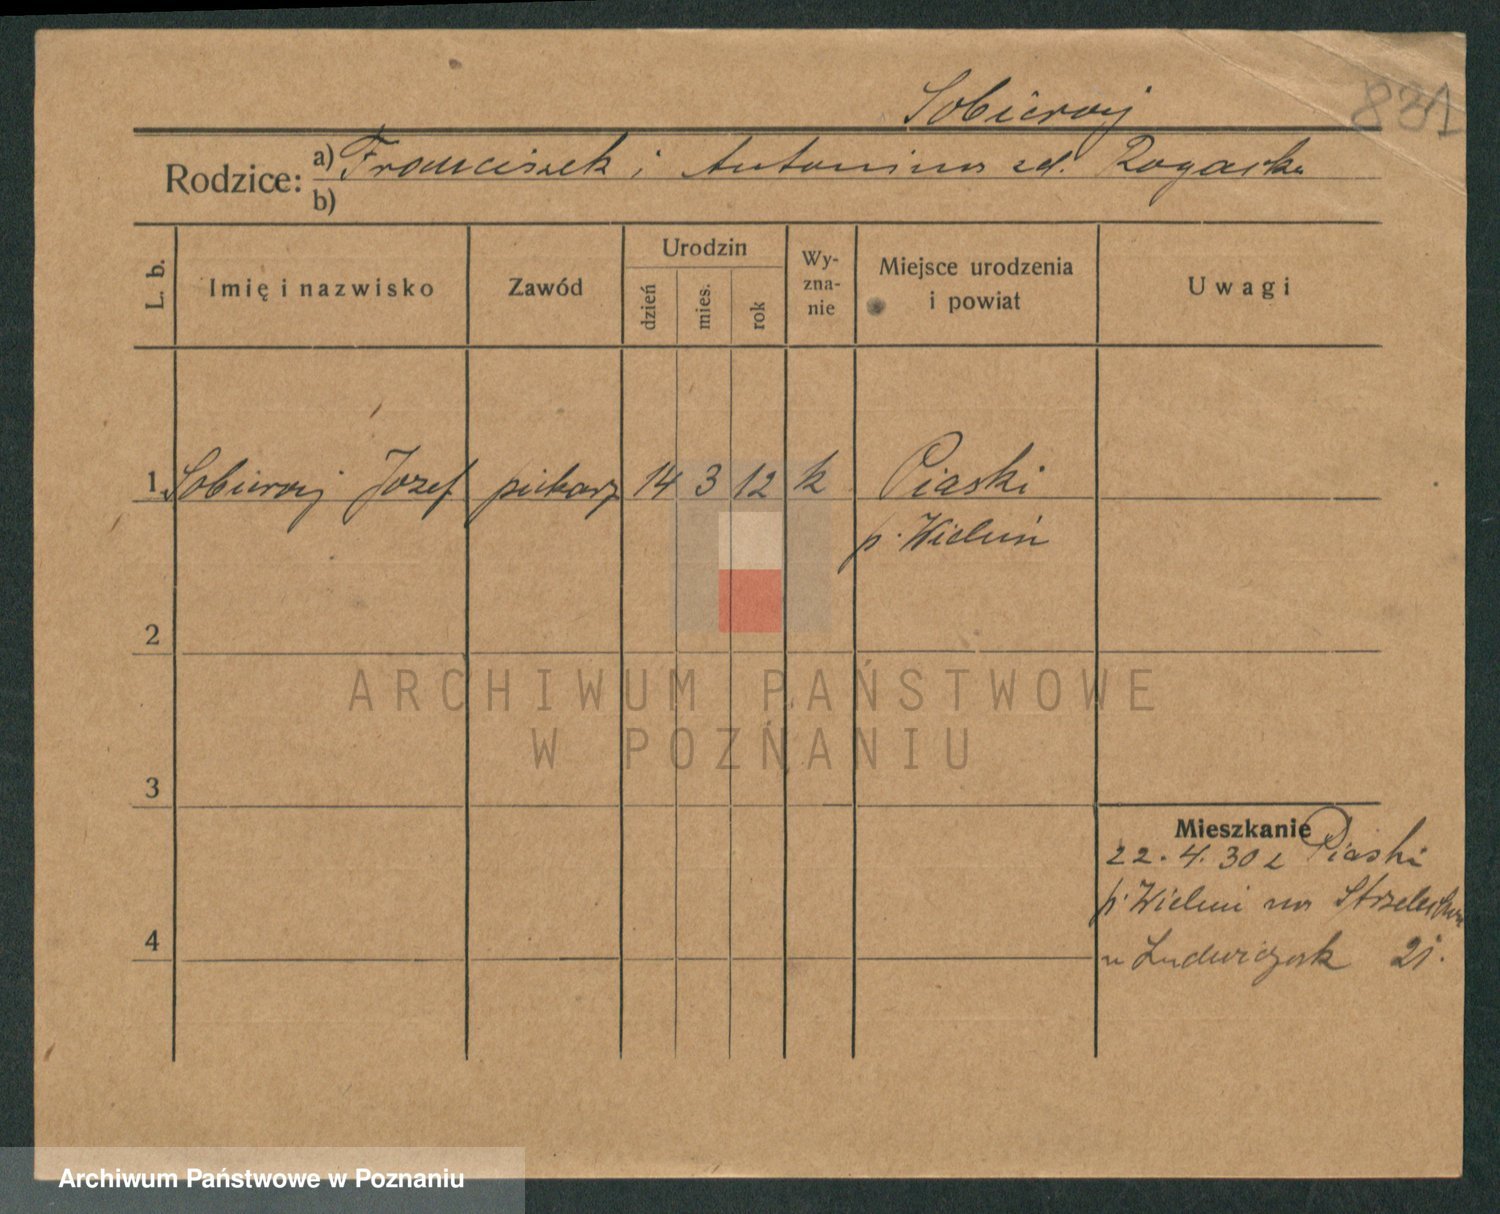 831
Sobieraj
Rodzice: a) Franciszek i Antonina zd. Rogaska
b)
L. b. Imię i nazwisko Zawód Urodzin dzień mies. rok Wy-zna-nie Miejsce urodzenia i powiat Uwagi
1 Sobieraj Józef piekarz 14 3 12 k Piaski
p. Wieluń
2
ARCHIWUM PAŃSTWOWE
W POZNANIU
3
Mieszkanie
22.4.30 z Piaski
p. Wieluń na
4
u Ludwiczak 21.
Archiwum Państwowe w Poznaniu